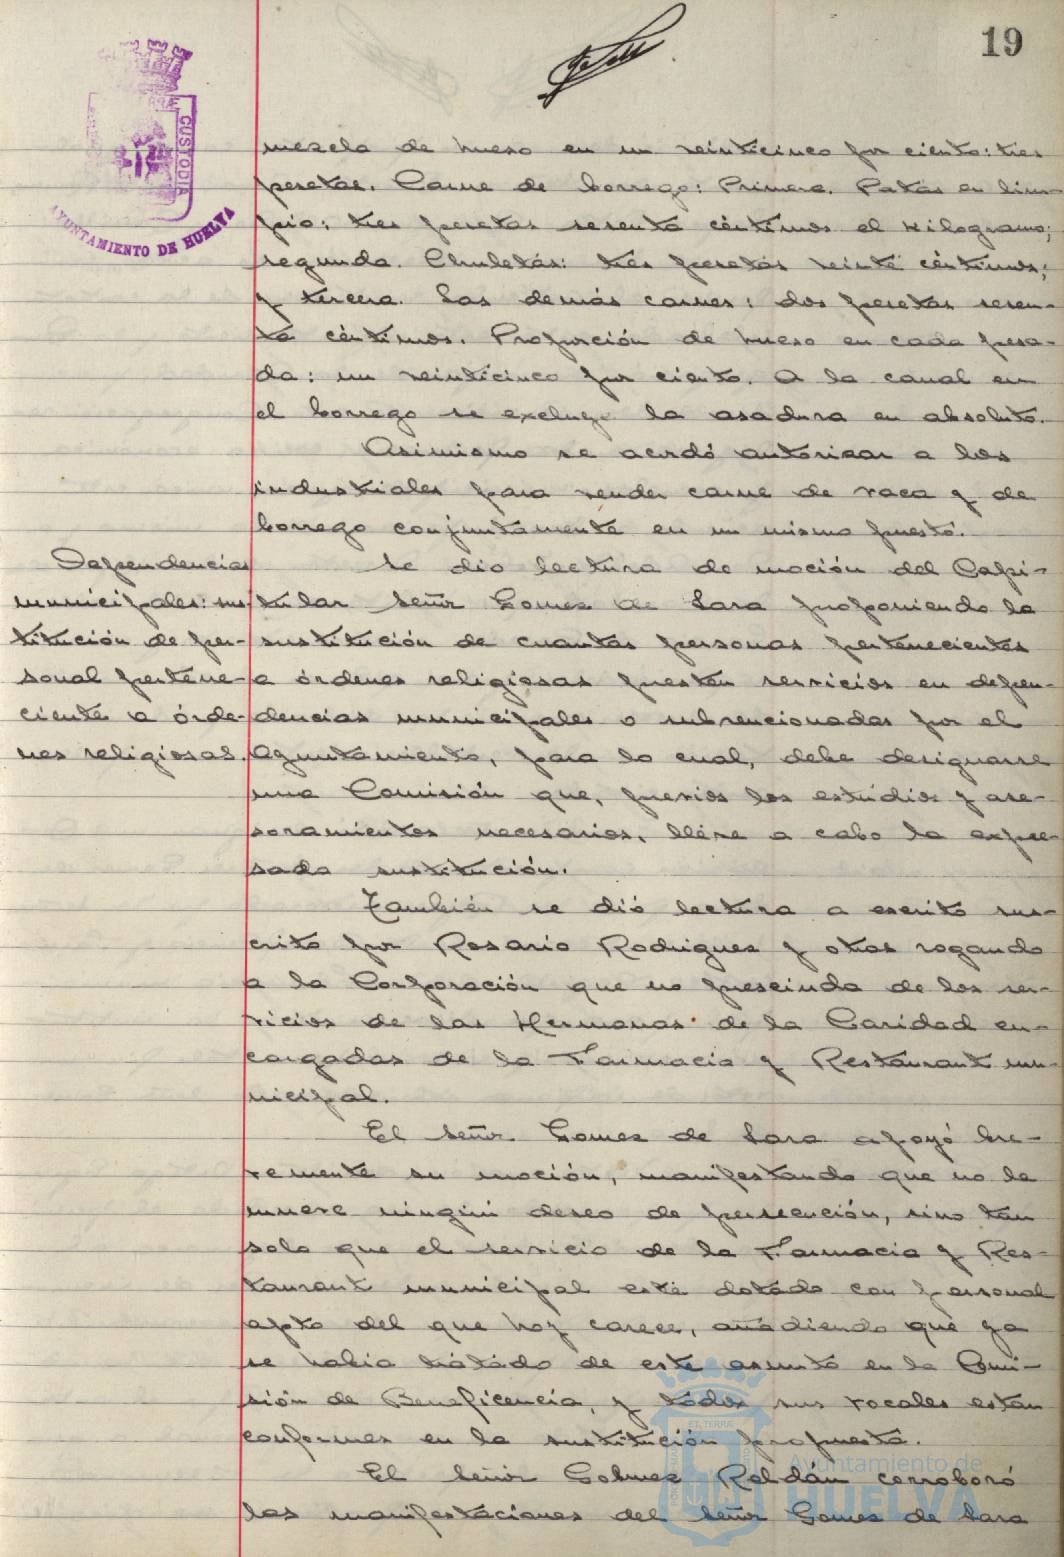 19
CUSTODIA
AYUNTAMIENTO DE HUELVA
mezcla de hueso en un veinticinco por ciento: tres
pesetas. Carne de borrego: Primera. Patas en lim-
pio: tres pesetas sesenta céntimos el kilogramo;
segunda. Chuletas: tres pesetas veinte céntimos;
y tercera. Las demás carnes: dos pesetas sesen-
ta céntimos. Proporción de hueso en cada pesa-
da: un veinticinco por ciento. A la canal en
el borrego se excluye la asadura en absoluto.
Asimismo se acordó autorizar a los
industriales para vender carne de vaca y de
borrego conjuntamente en un mismo puesto.
Dependencias
municipales: sus
titución de per-
sonal pertene-
ciente a órde-
nes religiosas.
Se dio lectura de moción del Capi-
tular Señor Gomez de Lara proponiendo la
sustitución de cuantas personas pertenecientes
a órdenes religiosas presten servicios en depen-
dencias municipales o subvencionadas por el
Ayuntamiento, para lo cual, debe designarse
una Comisión que, previos los estudios y ase-
soramientos necesarios, lléve a cabo la expre-
sada sustitución.
También se dió lectura a escrito sus-
crito por Rosario Rodriguez y otras rogando
a la Corporación que no prescinda de los ser-
vicios de las Hermanas de la Caridad en-
cargadas de la Farmacia y Restaurant mu-
nicipal.
El Señor Gomez de Lara apoyó bre-
vemente su moción, manifestando que no le
mueve ningún deseo de persecución, sino tan
solo que el servicio de la Farmacia y Res-
taurant municipal esté dotado con personal
apto del que hoy carece, añadiendo que ya
se había tratado de este asunto en la Comi-
sión de Beneficencia, y todos sus vocales estan
conformes en la sustitución propuesta.
El Señor Gelmez Roldán corroboró
las manifestaciones del Señor Gomez de Lara
Ayuntamiento de
HUELVA